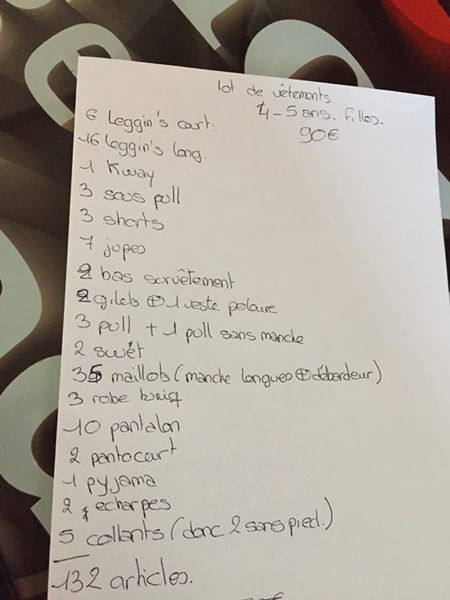 lot de vêtements
4-5 ans. filles.
90€
6 leggin's court.
16 leggin's long.
1 Kway
3 sous pull
3 shorts
7 jupes
2 bas survêtement
2 gilets + 1 veste polaire
3 pull + 1 pull sans manche
2 swët
35 maillots (manche longues + débardeur)
3 robe
10 pantalon
2 pantocourt
1 pyjama
2 echarpes
5 collants (donc 2 sans pied.)
132 articles.